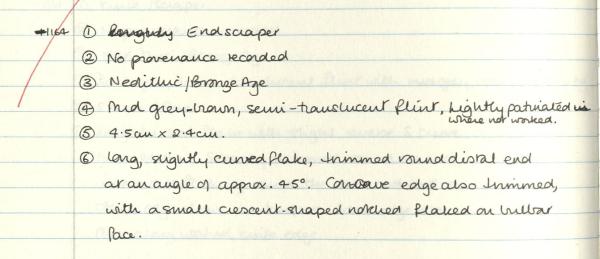 1164 ① Endscraper
② No provenance recorded
③ Neolithic/Bronze Age
④ Mid grey-brown, semi-translucent flint, lightly patinated
where not worked.
⑤ 4.5cm x 2.4cm.
⑥ Long, slightly curved flake, trimmed round distal end
at an angle of approx. 45°. Concave edge also trimmed,
with a small crescent-shaped notched flaked on bulbar
face.